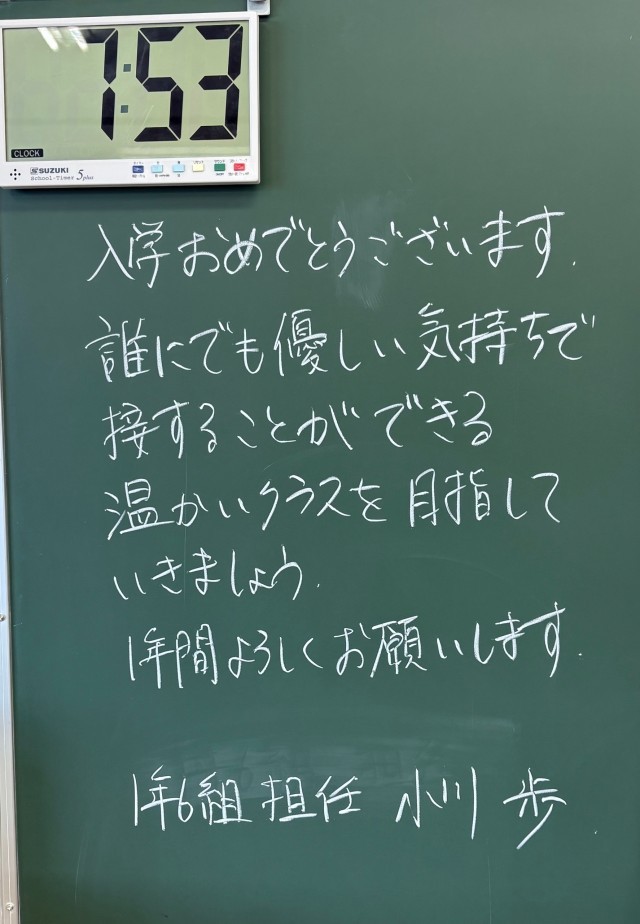 7:53
CLOCK
SUZUKI
School-Timer Splus
入学おめでとうございます.
誰にでも優しい気持ちで
接することができる
温かいクラスを目指して
いきましょう.
1年間よろしくお願いします.
1年6組 担任 小川 歩.